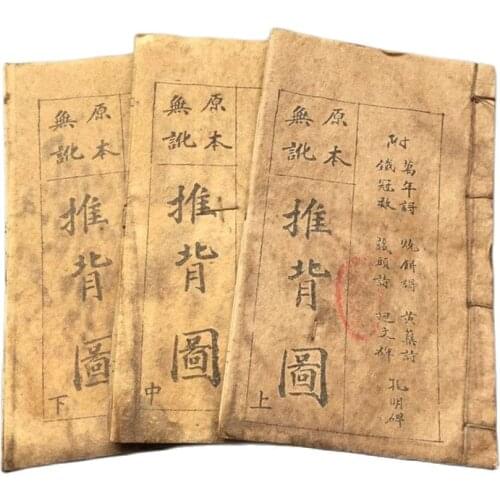 原本
無訛
推背圖
上
附
萬年詩 燒餅謌 黃蘗詩
鐵冠數 頭詩 孔明碑
原本
無訛
推背圖
中
原本
無訛
推背圖
下